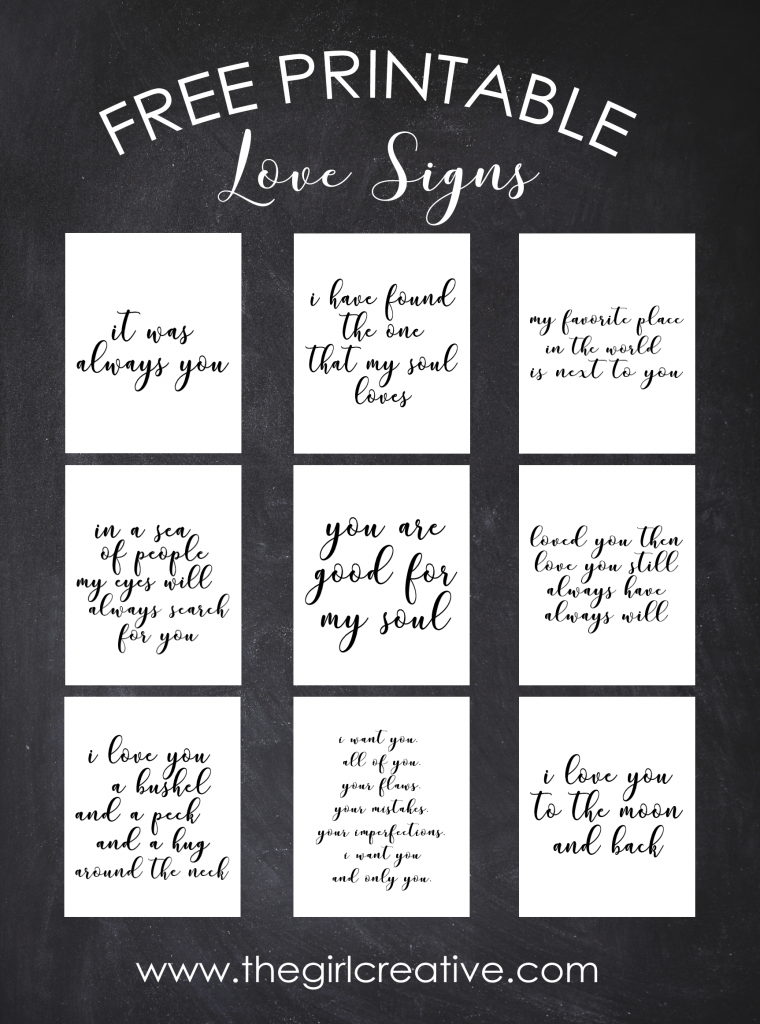 FREE PRINTABLE
Love Signs
it was
always you
i have found
the one
that my soul
loves
my favorite place
in the world
is next to you
in a sea
of people
my eyes will
always search
for you
you are
good for
my soul
loved you then
love you still
always have
always will
i love you
a bushel
and a peck
and a hug
around the neck
i want you.
all of you.
your flaws.
your mistakes.
your imperfections.
i want you
and only you.
i love you
to the moon
and back
www.thegirlcreative.com